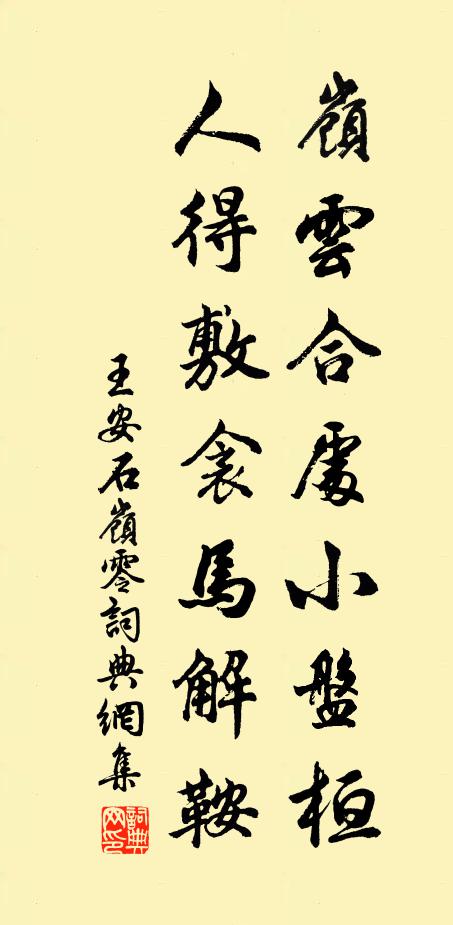 嶺雲合處小盤桓
人得敷衾馬解鞍
王安石嶺零詞典網集
詞典网印